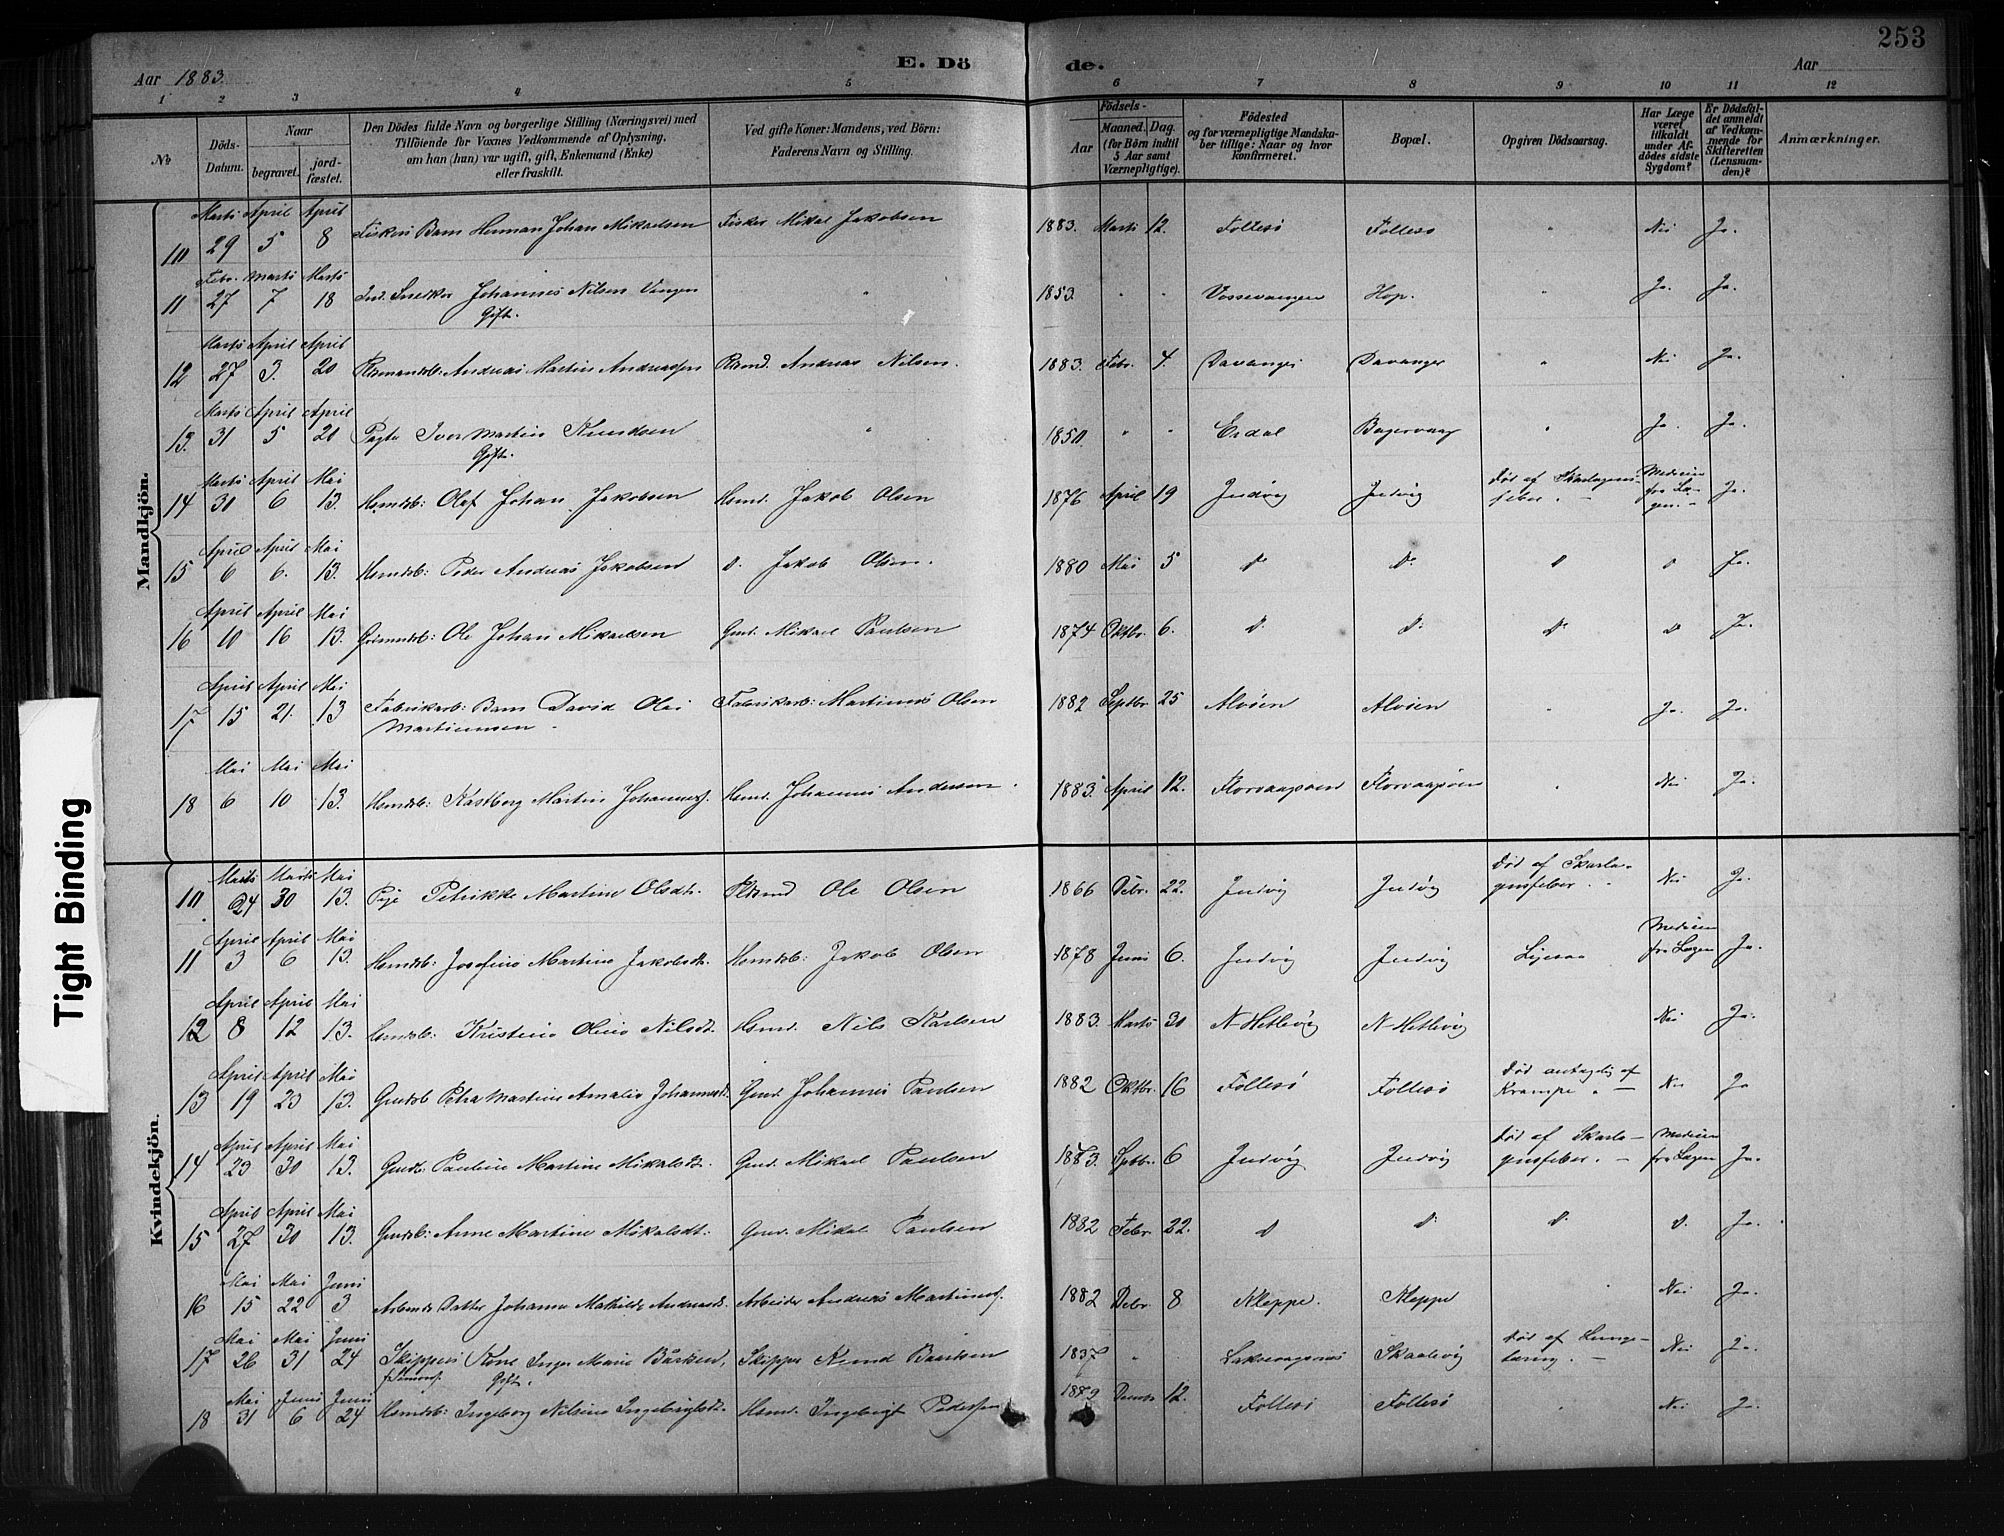 253
E. Dö de.
Aar 1883.
Aar
1 2 3 4 5 6 7 8 9 10 11 12
№
Döds-Datum.
Naar
begravet.
jord-fæstet.
Den Dödes fulde Navn og borgerlige Stilling (Næringsvei) med
Tilföiende for Voxnes Vedkommende af Oplysning,
om han (hun) var ugift, gift, Enkemand (Enke)
eller fraskilt.
Ved gifte Koner: Mandens, ved Börn:
Faderens Navn og Stilling.
Födsels-
Aar
Maaned. Dag.
(for Börn indtil
5 Aar samt
Værnepligtige).
Födested
og for værnepligtige Mandska-
ber tillige: Naar og hvor
konfirmeret.
Bopæl.
Opgiven Dödsaarsag.
Har Læge
været
tilkaldt
under Af-
dödes sidste
Sygdom?
Er Dödsfal-
det anmeldt
af Vedkom-
mende for
Skifteretten
(Lensman-
den)?
Anmærkninger.
Mandkjön.
10 Marts 29 April 5 April 8 Fiskers Barn Herman Johan Mikaelsen Fisker Mikal Jakobsen 1883. Marts 12. Follesö Follesö " Nei Ja.
11 Febr. 27 Marts 7 Marts 18 Ind. Snedker Johannes Nilsen Vangen " 1853. " " Vossevangen Hop. " Ja. Ja.
Gift.
12 Marts 27 April 3. April 20 Andreas Martin Andreassen Andreas Nilsen. 1883. Febr. 4. Davanger Davanger " Nei Ja.
13. Marts 31 April 5 April 20 Iver Martin Knudsen " 1850. " " Erdal " Ja. Ja.
Gift.
14 Marts 30 April 6 Mai 13. Hsmdsb: Olaf Johan Jakobsen Hsmd. Jakob Olsen 1876 April 19 Indvig Indvig Död af Skarlagens-
feber. Medicin fra Lægen. Ja.
15 April 6 April 6. Mai 13. Hsmdsb: Peder Andreas Jakobsen D. Jakob Olsen. 1880 Mai 5 D. D. D D Ja.
16 April 10 April 16 Mai 13. Ole Johan Mikaelsen Gmd. Mikael Paulsen 1874 Oktbr. 6. D. D. D. D Ja.
17 April 15 April 21. Mai 13 Fabrikarb: Barn David Olai Fabrikarb: Martinus Olsen 1882 Septbr. 25 Alvöen Alvöen " Ja. Ja.
Martinussen
18 Mai 6 Mai 10 Mai 13. Hsmdsb: Kastberg Martin Johanness. Hsmd. Johannes Andersen 1883. April 12. Florvaagöen Florvaagöen " Nei Ja.
Kvindekjön.
10 Marts 24 Marts 30 Mai 13. Pige Petrikke Martine Olsdt. Ole Olsen 1866 Debr. 22. Indvig Indvig Död af Skarla-
gensfeber. Nei Ja.
11 April 3 April 6 Mai 13. Hsmdsb: Josefine Martine Jakobsdt. Hsmdsb: Jakob Olsen 1878 Juni 6. Indvig Indvig Ligesaa Medicin fra Lægen Ja.
12 April 8 April 12 Mai 13. Hsmdsb: Kristine Oline Nilsdt. Hsmd. Nils Karlsen 1883. Marts 30 N-Hetlevig N-Hetlevig Nei Ja.
13 April 19 April 23 Mai 13. Gmdsb Petra Martine Amalie Johannesdt. Gmd. Johannes Paulsen 1882 Oktbr. 16 Follesö Follesö Död antagelig af
Krampe. Nei Ja
14 April 23 April 30 Mai 13. Gmdsb. Pauline Martine Mikalsdt. Gmd. Mikael Paulsen 1873. Septbr. 6 Indvig Indvig Död af Skarla-
gensfeber. Medicin fra Lægen Ja.
15 April 27 April 30 Mai 13. Gmdsb: Anne Martine Mikalsdt. Gmd. Mikal Paulsen 1882 Febr. 22. D D. D. D. Ja.
16 Mai 15 Mai 22 Juni 3 Arbeids Datter Johanne Mathilde Andreasdt. Arbeider Andreas Martinus. 1882 Debr. 8 Kleppe. Kleppe Nei Ja.
17 Mai 26 Mai 31 Juni 24 Skippers Kone Inger Marie Bårdsen, Skipper Knud Baardsen 1837 " Laksevaagsnes Skaalevig Död af Lunge-
tæring. Nei Ja.
f. Simons. Gift.
18 Mai 31 Juni 6 Juni 24 Hsmdsb: Ingeborg Nilsine Ingebrigtsdt. Hsmd. Ingebrigt Pedersen 12. Follesö Follesö " Nei Ja.
Tight Binding